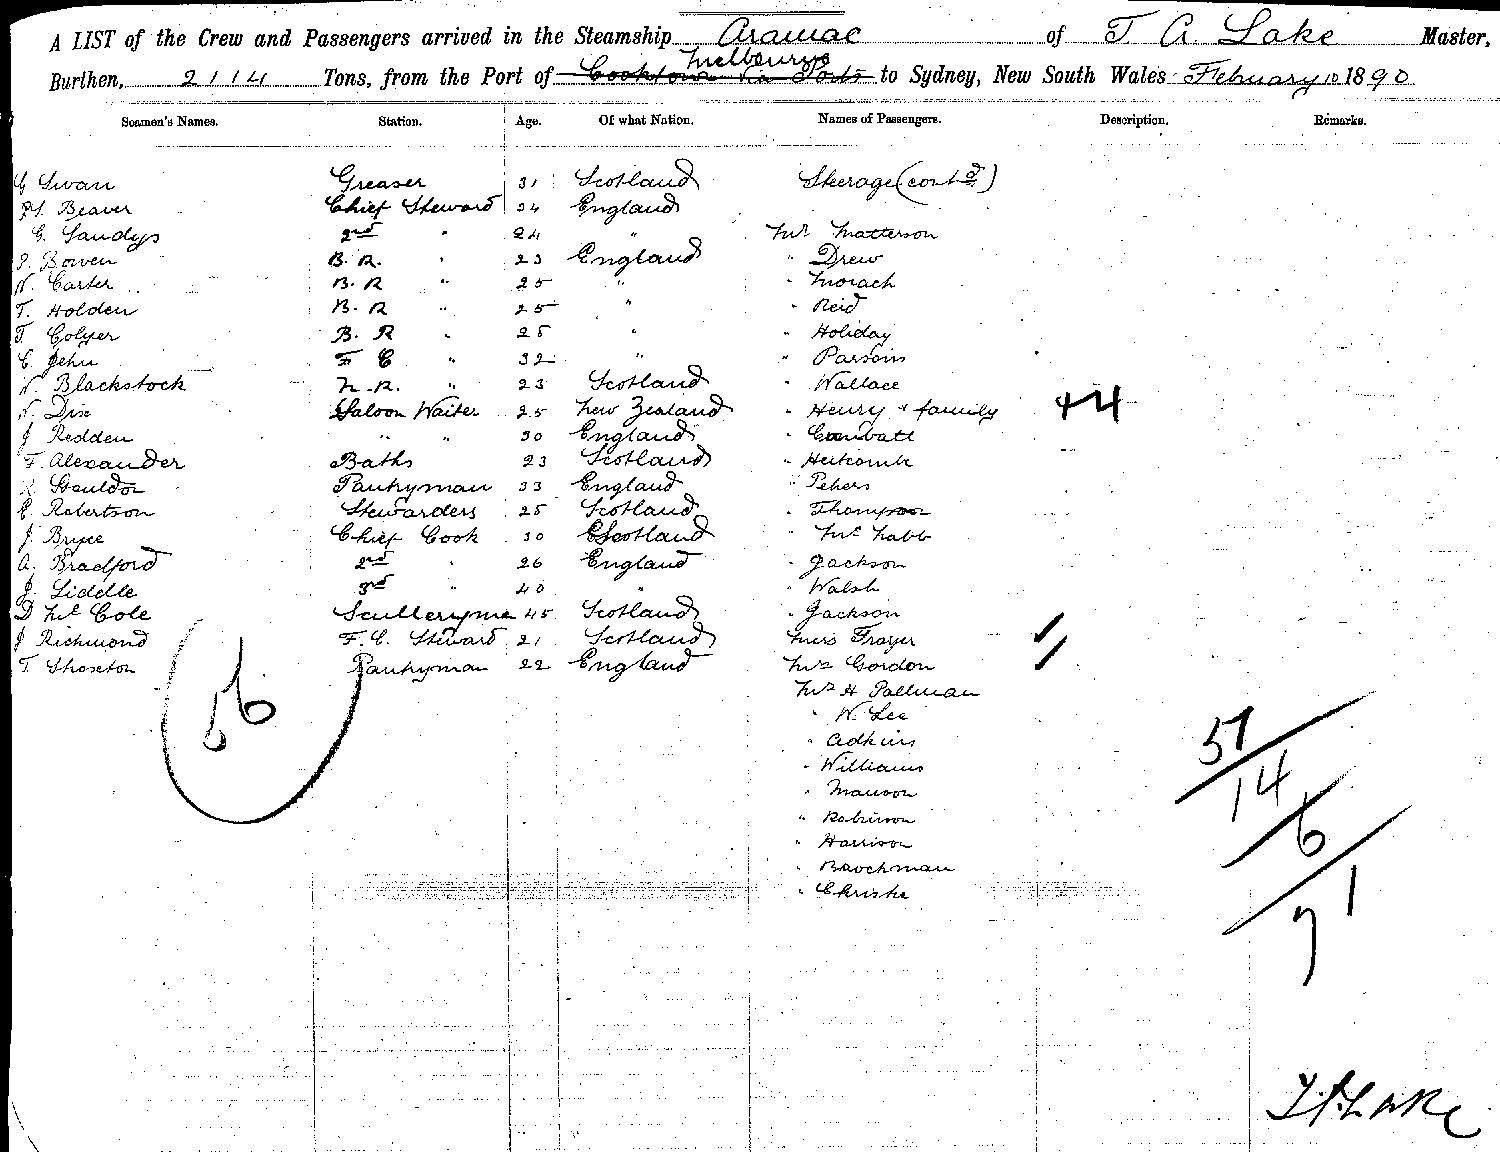 A LIST of the Crew and Passengers arrived in the Steamship Aramac of T. A. Lake Master,
Melbourne
Burthen, 2114 Tons, from the Port of Cooktown via Ports to Sydney, New South Wales February 10 1890
Seamen's Names. Station. Age. Of what Nation. Names of Passengers. Description. Remarks.
G Swan Greaser 31 Scotland Steerage (contd)
H. Beaver Chief Steward 34 England
G. Sandys 2nd " 24 " Mr Matterson
Bowen B. R. " 23 England " Drew
W. Carter B. R " 25 " " Morach
T. Holden B. R " 25 " " Reid
T. Colyer B. R " 25 " " Holiday
C. Jehu F C " 32 " " Parsons
W. Blackstock " 23 Scotland " Wallace
W. Dix Saloon Waiter 25 New Zealand " Henry & family +4
J Redden " " 30 England "
F. Alexander Baths 23 Scotland "
Pantryman 33 England " Peters
E. Robertson Stewardess 25 Scotland " Thompson
J. Bryce Chief Cook 30 Scotland " McNabb
A. Bradford 2nd " 26 England " Jackson
J. Liddle 3rd " 40 " " Walsh
D McCole Sculleryman 45 Scotland " Jackson
J Richmond F. C. Steward 21 Scotland Miss Frazer
T. Pantryman 22 England Mrs Gordon
Mr H Pallman
" W. Lee
" Adkins
" Williams
"
" Robinson
" Harrison
"
" Christie
56
57
14
6
71
T. A. Lake